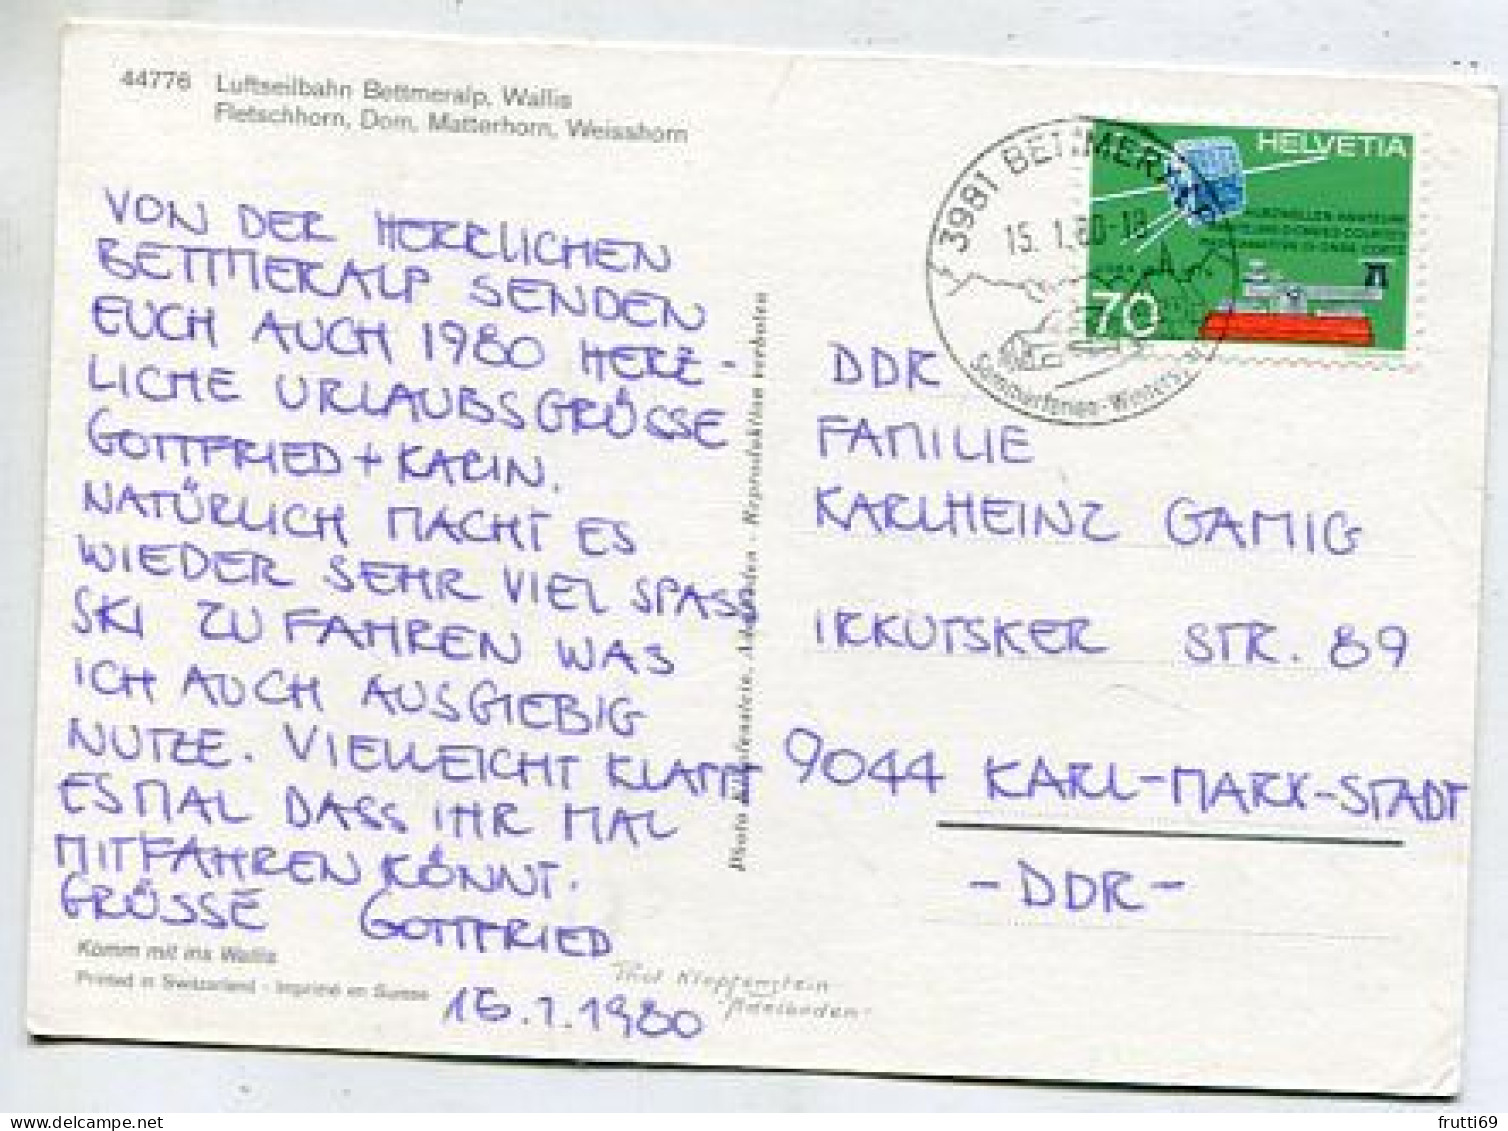 44776 Luftseilbahn Bettmeralp, Wallis
Fletschhorn, Dom, Matterhorn, Weisshorn
VON DER HERRLICHEN
BETTMERALP SENDEN
EUCH AUCH 1980 HERZ-
LICHE URLAUBSGRÜSSE
GOTTFRIED + KARIN.
NATÜRLICH MACHT ES
WIEDER SEHR VIEL SPASS
SKI ZU FAHREN WAS
ICH AUCH AUSGIEBIG
NUTZE. VIELLEICHT KLAPPT
ES MAL DASS IHR MAL
MITFAHREN KÖNNT.
GRÜSSE GOTTFRIED
15.1.1980
Komm mit ins Wallis
Printed in Switzerland - Imprimé en Suisse
Thor Kloppenstein
Adelboden
Photo Klopfenstein, Adelboden - Reproduktion verboten
3981 BETTMERALP
15. 1. 80-18
Sommerferien - Winters
HELVETIA
KURZWELLEN-AMATEURE
70
DDR
FAMILIE
KARLHEINZ GAMIG
IRKUTSKER STR. 89
9044 KARL-MARX-STADT
-DDR-
frutti69